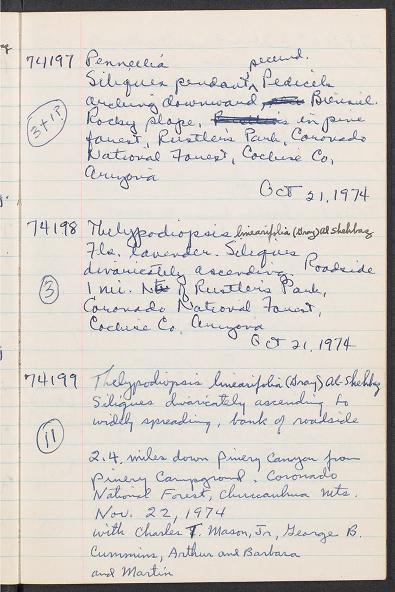 74197 Pennellia
Siliques pendant, secund. Pedicels
arching downward Biennial.
3+1P
Rocky slope, in pine
forest, Rustler's Park, Coronado
National Forest, Cochise Co,
Arizona
Oct 21, 1974
74198 Thelypodiopsis linearifolia (Gray) Al-Shehbaz
Fls. lavender. Siliques
divaricately ascending. Roadside
3
1 mi. N of Rustler's Park,
Coronado National Forest,
Cochise Co, Arizona
Oct 21, 1974
74199 Thelypodiopsis linearifolia (Gray) Al-Shehbaz
Siliques divaricately ascending to
widely spreading, bank of roadside
11
2.4 miles down Pinery Canyon from
Pinery Campground. Coronado
National Forest, Chiricahua Mts.
Nov. 22, 1974
with Charles T. Mason, Jr, George B.
Cummins, Arthur and Barbara
and Martin